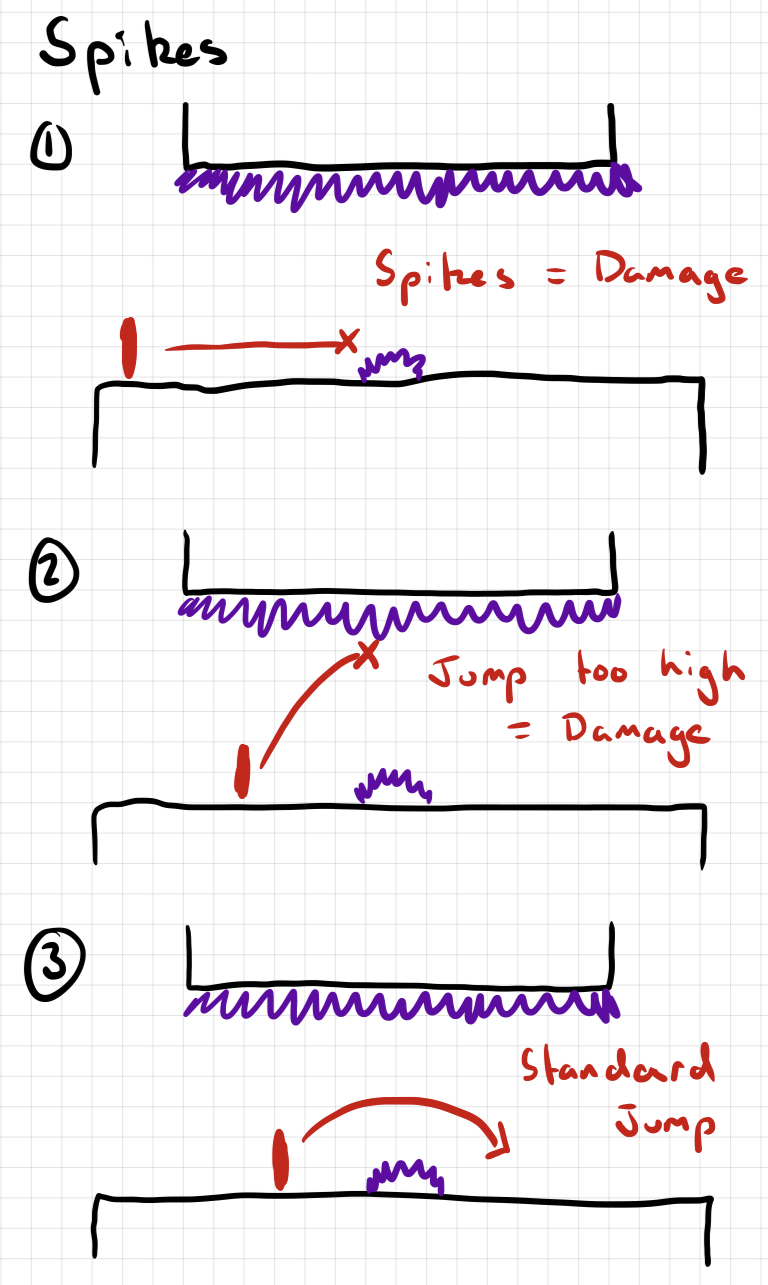 Spikes
1
Spikes = Damage
2
Jump too high
= Damage
3
Standard
Jump